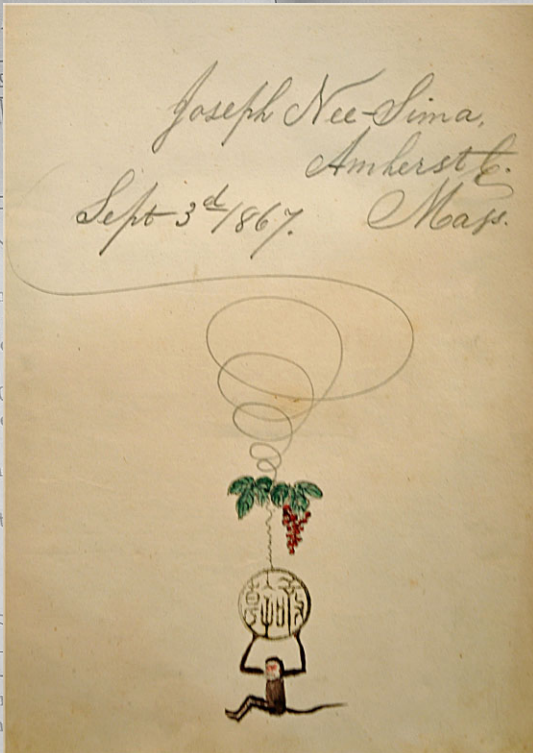 Joseph Nee-Sima,
Amherst C.
Sept 3d/1867. Mass.